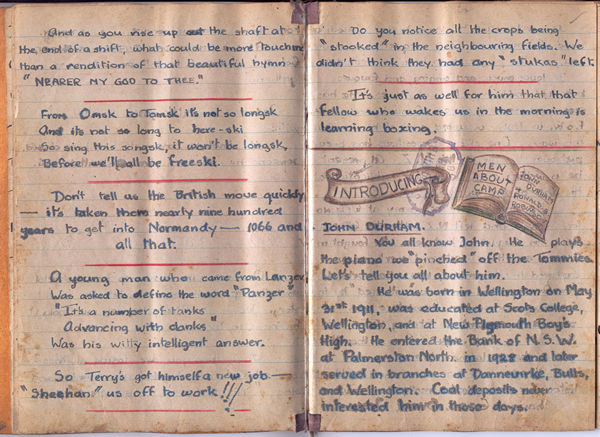 And as you rise up out the shaft at
the end of a shift, what could be more touching
than a rendition of that beautiful hymn
"NEARER MY GOD TO THEE."
From Omsk to Tomsk it's not so longsk
And its not so long to here-ski
So sing this songsk, it won't be longsk,
Before we'll all be freeski.
Don't tell us the British move quickly
— it's taken them nearly nine hundred
years to get into Normandy — 1066 and
all that.
A young man who came from Lanzer
Was asked to define the word "Panzer"
"It's a number of tanks
Advancing with clanks"
Was his witty intelligent answer.
So Terry's got himself a new job —
"Sheehan" us off to work!!!
Do you notice all the crops being
"stooked" in the neighbouring fields. We
didn't think they had any "stukas" left.
It's just as well for him that that
fellow who wakes us in the morning is
learning boxing.
INTRODUCING
MEN
ABOUT
CAMP
JOHN
DURHAM
JOHN DURHAM.
You all know John. He plays
the piano we "pinched" off the Tommies.
Let's tell you all about him.
He was born in Wellington on May
31st 1911, was educated at Scots College,
Wellington, and at New Plymouth Boy's
High. He entered the Bank of N.S.W.
at Palmerston North in 1928 and later
served in branches at Dannevirke, Bulls,
and Wellington. Coal deposits never
interested him in those days.